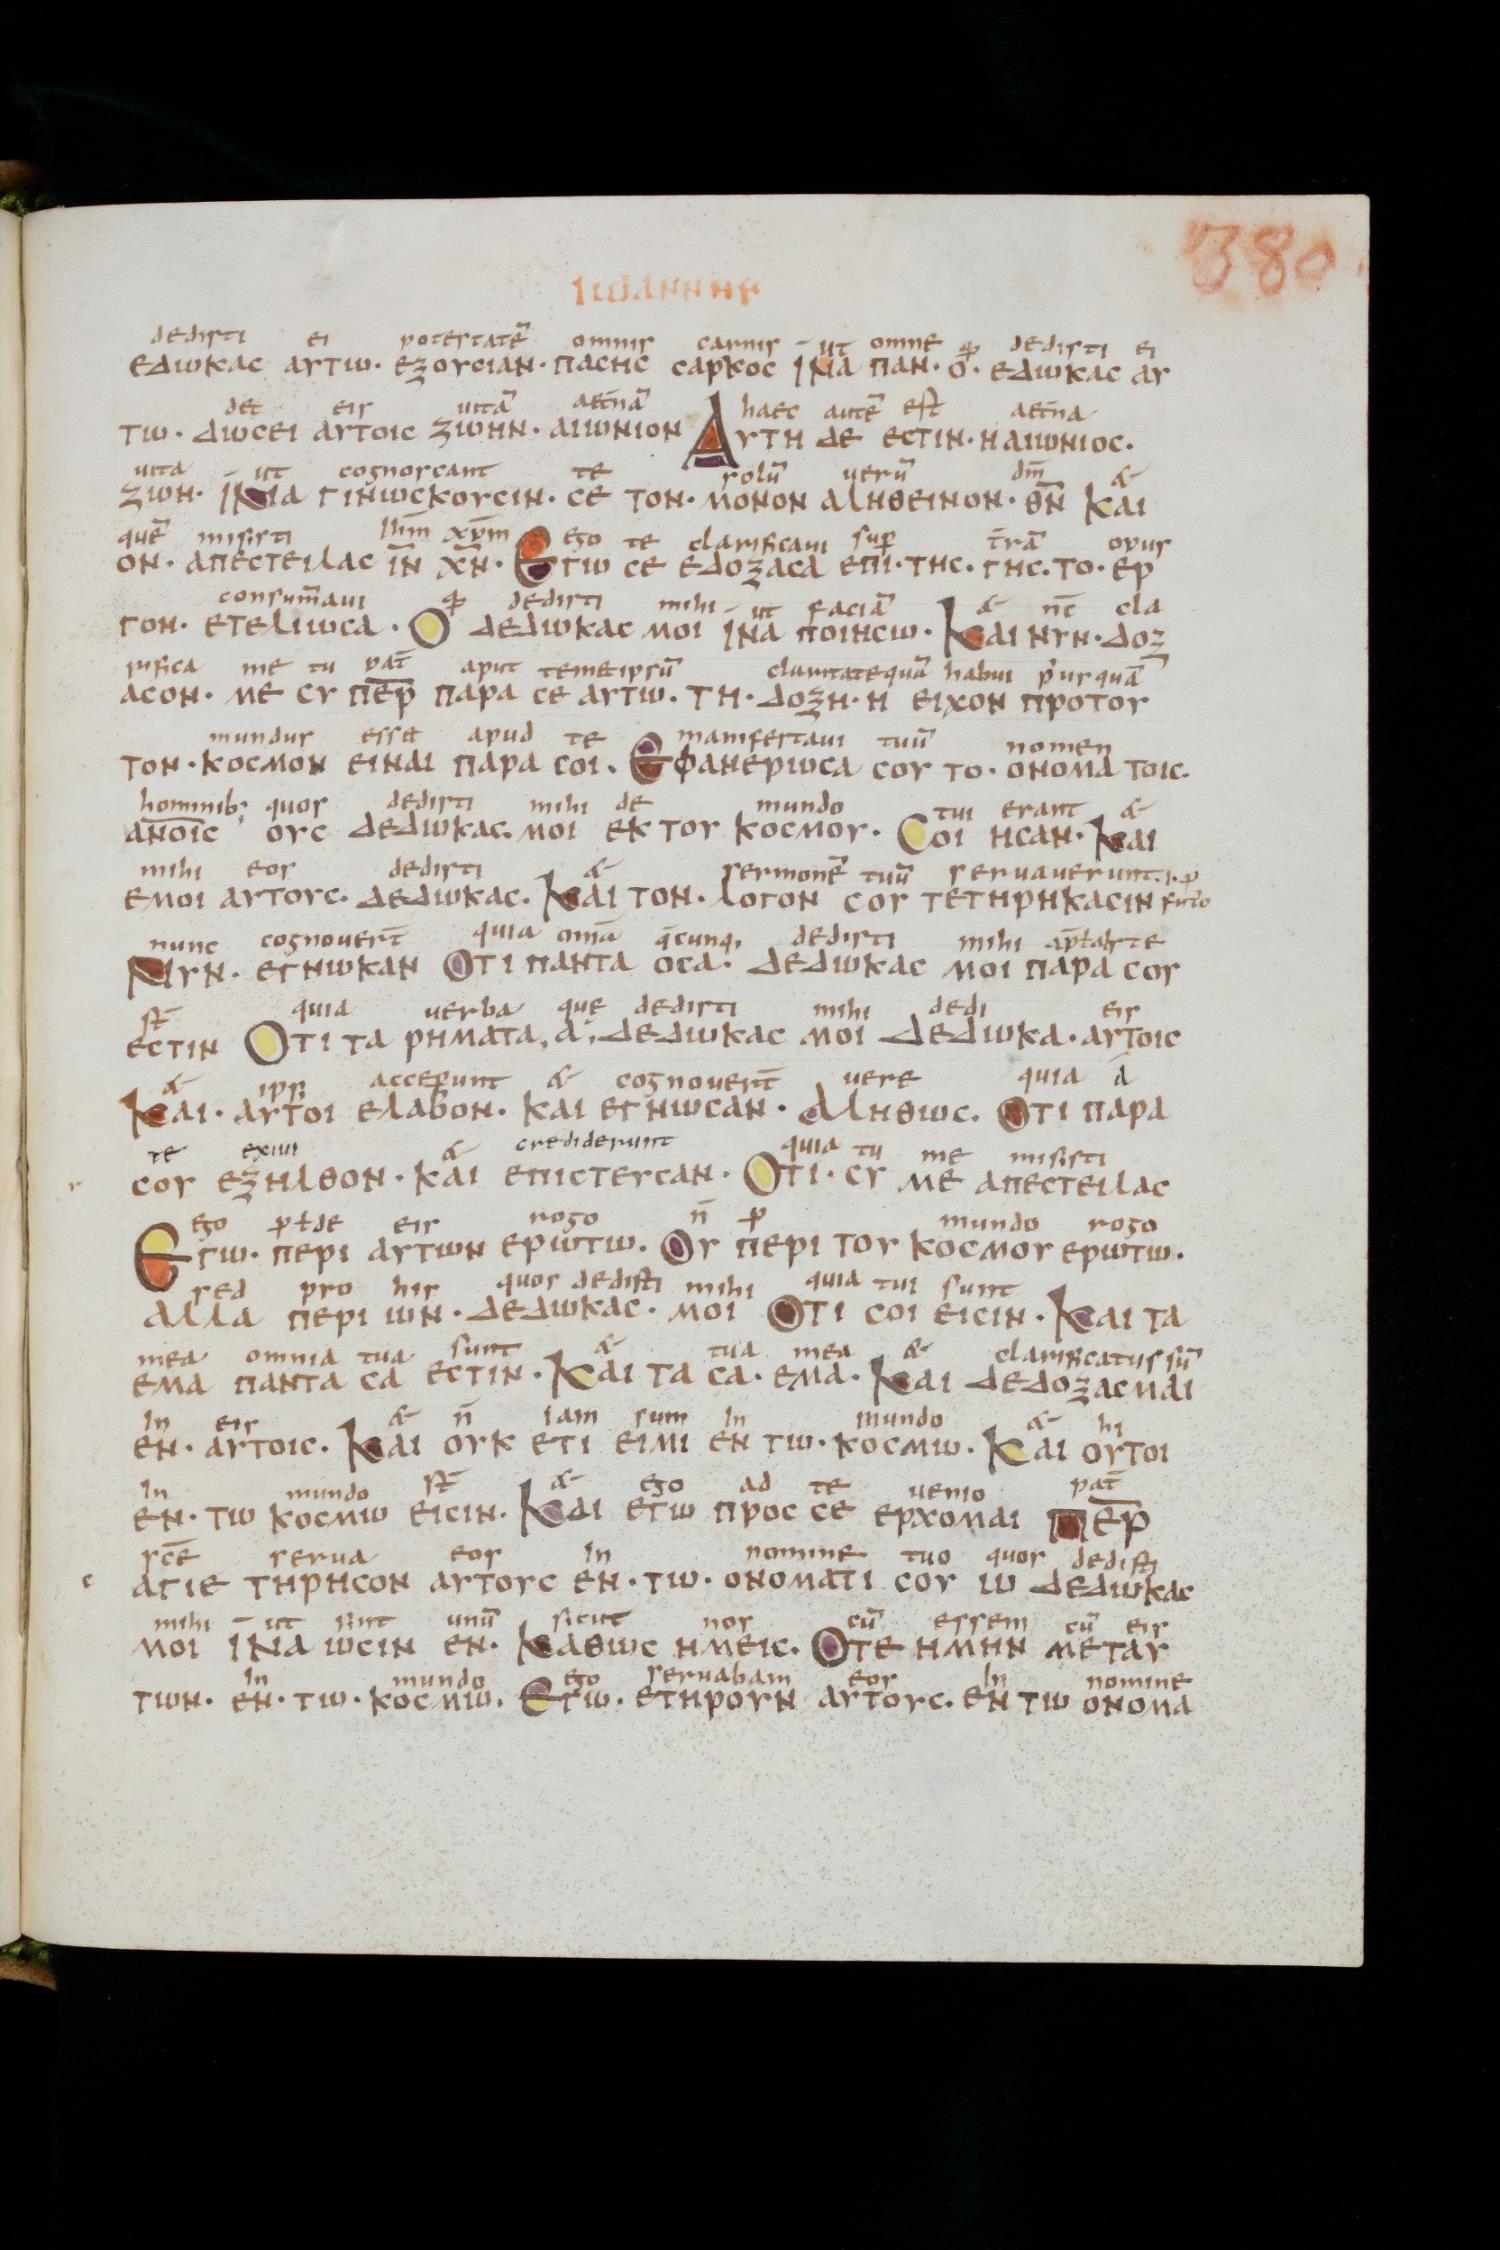 380
ΙωΑΝΝΗC
dedisti ei potestatē omnis carnis ut omne qđ dedisti ei
εΔωΚΑC ΑΥΤω· εΖΟΥCΙΑΝ· ΠΑCΗC CΑΡΚΟC ΙΝΑ ΠΑΝ· Ο· εΔωΚΑC ΑΥ
det eis uitā aet̄nā haec autē est aet̄na
Τω· ΔωCεΙ ΑΥΤΟΙC ΖωΗΝ· ΑΙωΝΙΟΝ ΑΥΤΗ Δε εCΤΙΝ· Η ΑΙωΝΙΟC·
uita ut cognoscant te solū uerū dm̄ &
ΖωΗ· ΙΝΑ ΓΙΝωCΚΟΥCΙΝ· Cε ΤΟΝ· ΜΟΝΟΝ ΑΛΗΘεΙΝΟΝ· Θ̅Ν̅ ΚΑΙ
quē misisti ihm̄ xp̄m ego te clarificaui sup̄ t̄rā opus
ΟΝ· ΑΠεCΤεΙΛΑC Ι̅Ν̅ Χ̅Ν̅· εΓω Cε εΔΟΖΑCΑ εΠΙ· ΤΗC· ΓΗC· ΤΟ· εΡ
consum̄aui qđ dedisti mihi ut faciā & nc̄ cla
ΓΟΝ· εΤεΛΙωCΑ· Ο ΔεΔωΚΑC ΜΟΙ ΙΝΑ ΠΟΙΗCω· ΚΑΙ ΝΥΝ· ΔΟΖ
rifica me tu pat̄ aput temetipsū claritate quā habui p'usquā
ΑCΟΝ· Με CΥ Π̅ε̅Ρ̅ ΠΑΡΑ Cε ΑΥΤω· ΤΗ· ΔΟΖΗ· Η εΙΧΟΝ ΠΡΟΤΟΥ
mundus esse apud te manifestaui tuū nomen
ΤΟΝ· ΚΟCΜΟΝ εΙΝΑΙ ΠΑΡΑ CΟΙ· εΦΑΝεΡΙωCΑ CΟΥ ΤΟ· ΟΝΟΜΑ ΤΟΙC·
hominib; quos dedisti mihi de mundo tui erant &
ΑΝ̅Ο̅ΙC ΟΥC ΔεΔωΚΑC· ΜΟΙ εΚ ΤΟΥ ΚΟCΜΟΥ· CΟΙ ΗCΑΝ· ΚΑΙ
mihi eos dedisti & sermonē tuū seruauerunt
εΜΟΙ ΑΥΤΟΥC· ΔεΔωΚΑC· ΚΑΙ ΤΟΝ· ΛΟΓΟΝ CΟΥ ΤεΤΗΡΗΚΑCΙΝ
nunc cognouer̄t quia om̄a q̄cunq; dedisti mihi te
ΝΥΝ· εΓΝωΚΑΝ ΟΤΙ ΠΑΝΤΑ ΟCΑ· ΔεΔωΚΑC ΜΟΙ ΠΑΡΑ CΟΥ
st̄ quia uerba que dedisti mihi dedi eis
εCΤΙΝ ΟΤΙ ΤΑ ΡΗΜΑΤΑ, Α, ΔεΔωΚΑC ΜΟΙ ΔεΔωΚΑ· ΑΥΤΟΙC
& ipsi acceperunt & cognouer̄t uere quia ā
ΚΑΙ· ΑΥΤΟΙ εΛΑΒΟΝ· ΚΑΙ εΓΝωCΑΝ· ΑΛΗΘωC· ΟΤΙ ΠΑΡΑ
te exiui & crediderunt quia tu me misisti
CΟΥ εΖΗΛΘΟΝ· ΚΑΙ εΠΙCΤεΥCΑΝ· ΟΤΙ· CΥ Με ΑΠεCΤεΙΛΑC
ego p ł de eis rogo n̄ p mundo rogo
εΓω· ΠεΡΙ ΑΥΤωΝ εΡωΤω· ΟΥ ΠεΡΙ ΤΟΥ ΚΟCΜΟΥ εΡωΤω·
sed pro his quos dedisti mihi quia tui sunt
ΑΛΛΑ ΠεΡΙ ωΝ· ΔεΔωΚΑC· ΜΟΙ ΟΤΙ CΟΙ εΙCΙΝ· ΚΑΙ ΤΑ
mea omnia tua sunt & tua mea & clarificatus sū
εΜΑ ΠΑΝΤΑ CΑ εCΤΙΝ· ΚΑΙ ΤΑ CΑ· εΜΑ· ΚΑΙ ΔεΔΟΖΑCΜΑΙ
In eis & n̄ iam sum In mundo & hi
εΝ· ΑΥΤΟΙC· ΚΑΙ ΟΥΚ εΤΙ εΙΜΙ εΝ Τω· ΚΟCΜω· ΚΑΙ ΟΥΤΟΙ
In mundo st̄ & ego ad te uenio pat̄
εΝ· Τω ΚΟCΜω εΙCΙΝ· ΚΑΙ εΓω ΠΡΟC Cε εΡΧΟΜΑΙ Πε̅Ρ̅
sc̄e serua eos In nomine tuo quos dedisti
ΑΓΙε ΤΗΡΗCΟΝ ΑΥΤΟΥC εΝ· Τω· ΟΝΟΜΑΤΙ CΟΥ ιω ΔεΔωΚΑC
mihi ut sint unū sicut nos cū essem cū eis
ΜΟΙ ΙΝΑ ωCΙΝ εΝ· ΚΑΘωC ΗΜεΙC· ΟΤε ΗΜΗΝ ΜεΤΑΥ
In mundo ego seruabam eos In nomine
ΤωΝ· εΝ· Τω· ΚΟCΜω· εΓω· εΤΗΡΟΥΝ ΑΥΤΟΥC· εΝ Τω ΟΝΟΜΑ